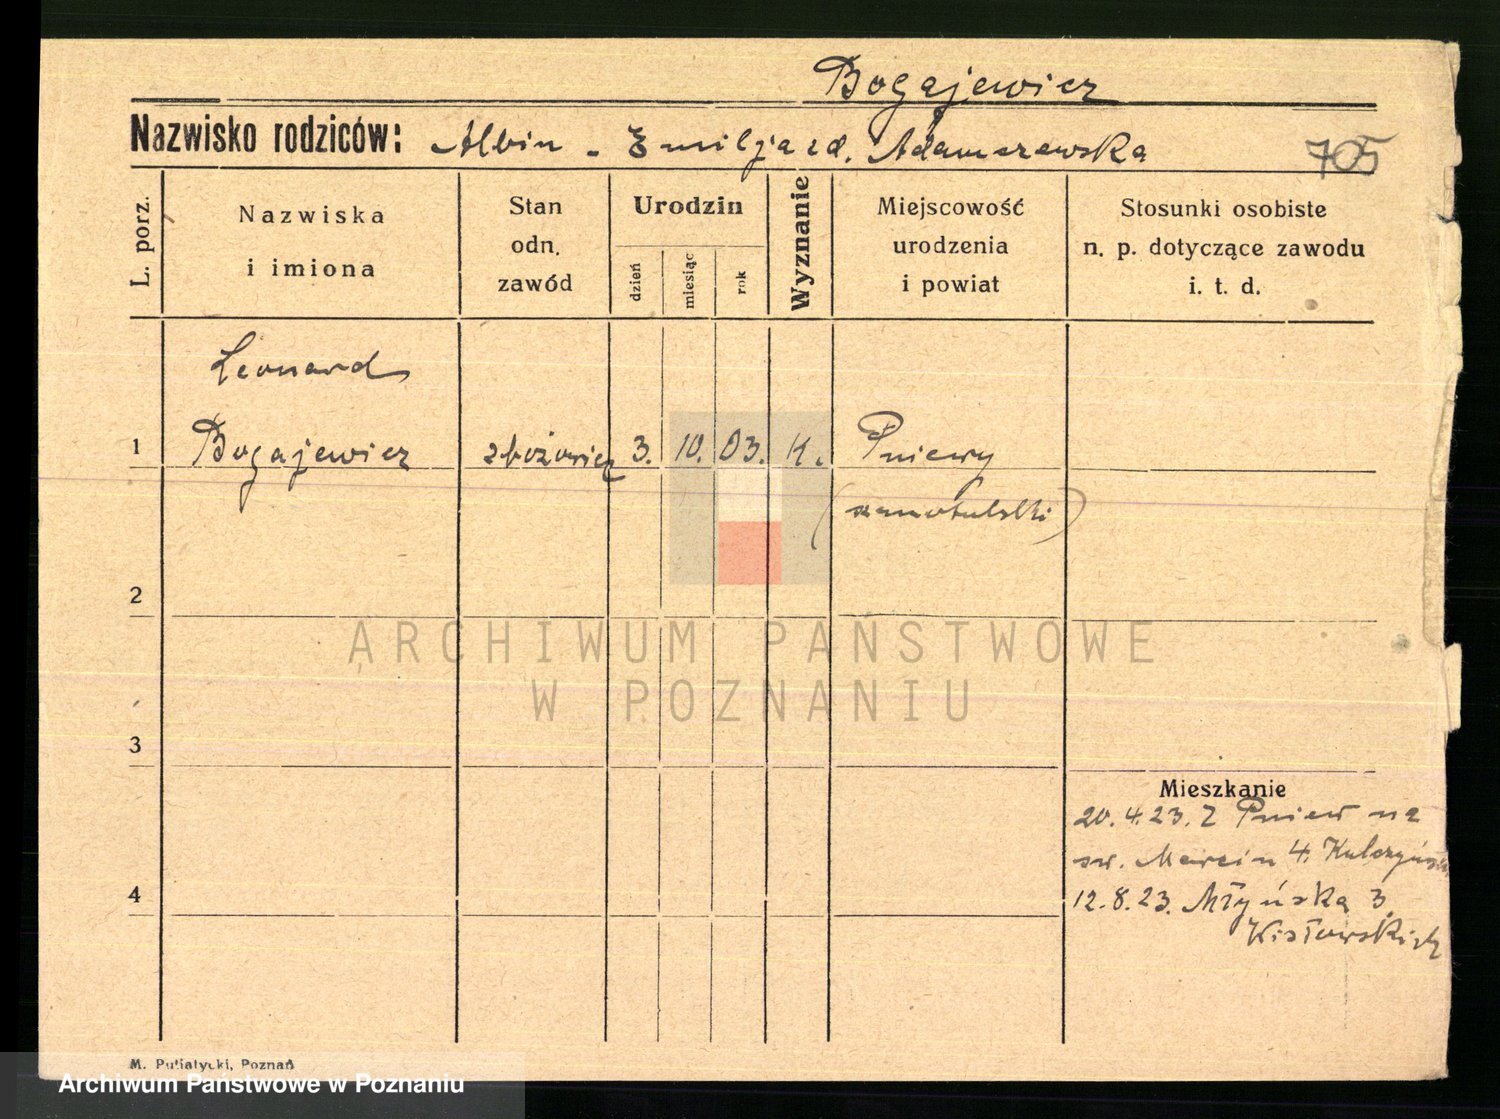 Bogajewicz
Nazwisko rodziców: Albin - Emilja zd. Adamczewska 705
L. porz.
Nazwiska
i imiona
Stan
odn.
zawód
Urodzin
dzień
miesiąc
rok
Wyznanie
Miejscowość
urodzenia
i powiat
Stosunki osobiste
n. p. dotyczące zawodu
i. t. d.
Leonard
1 Bogajewicz zbożowiec 3. 10. 03. K. Pniewy
(szamotulski)
2
ARCHIWUM PAŃSTWOWE
W POZNANIU
3
Mieszkanie
20.4.23. Z Pniew na
św. Marcin 4.
4 12.8.23. Młyńska 3
M. Putiatycki, Poznań
Archiwum Państwowe w Poznaniu